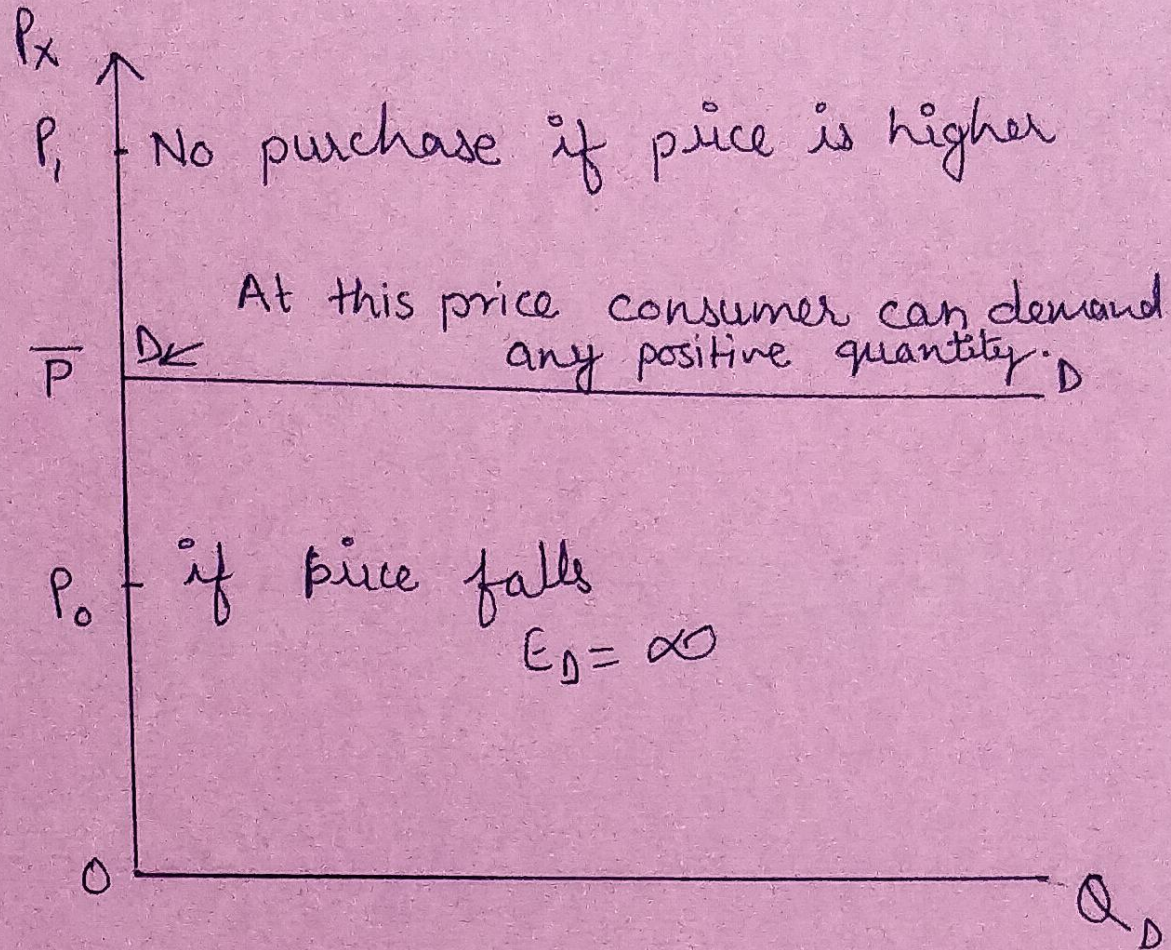 Px
P₁ No purchase if price is higher
At this price consumer can demand
P̅ D any positive quantity. D
P₀ if price falls
E_D = ∞
O
Q_D